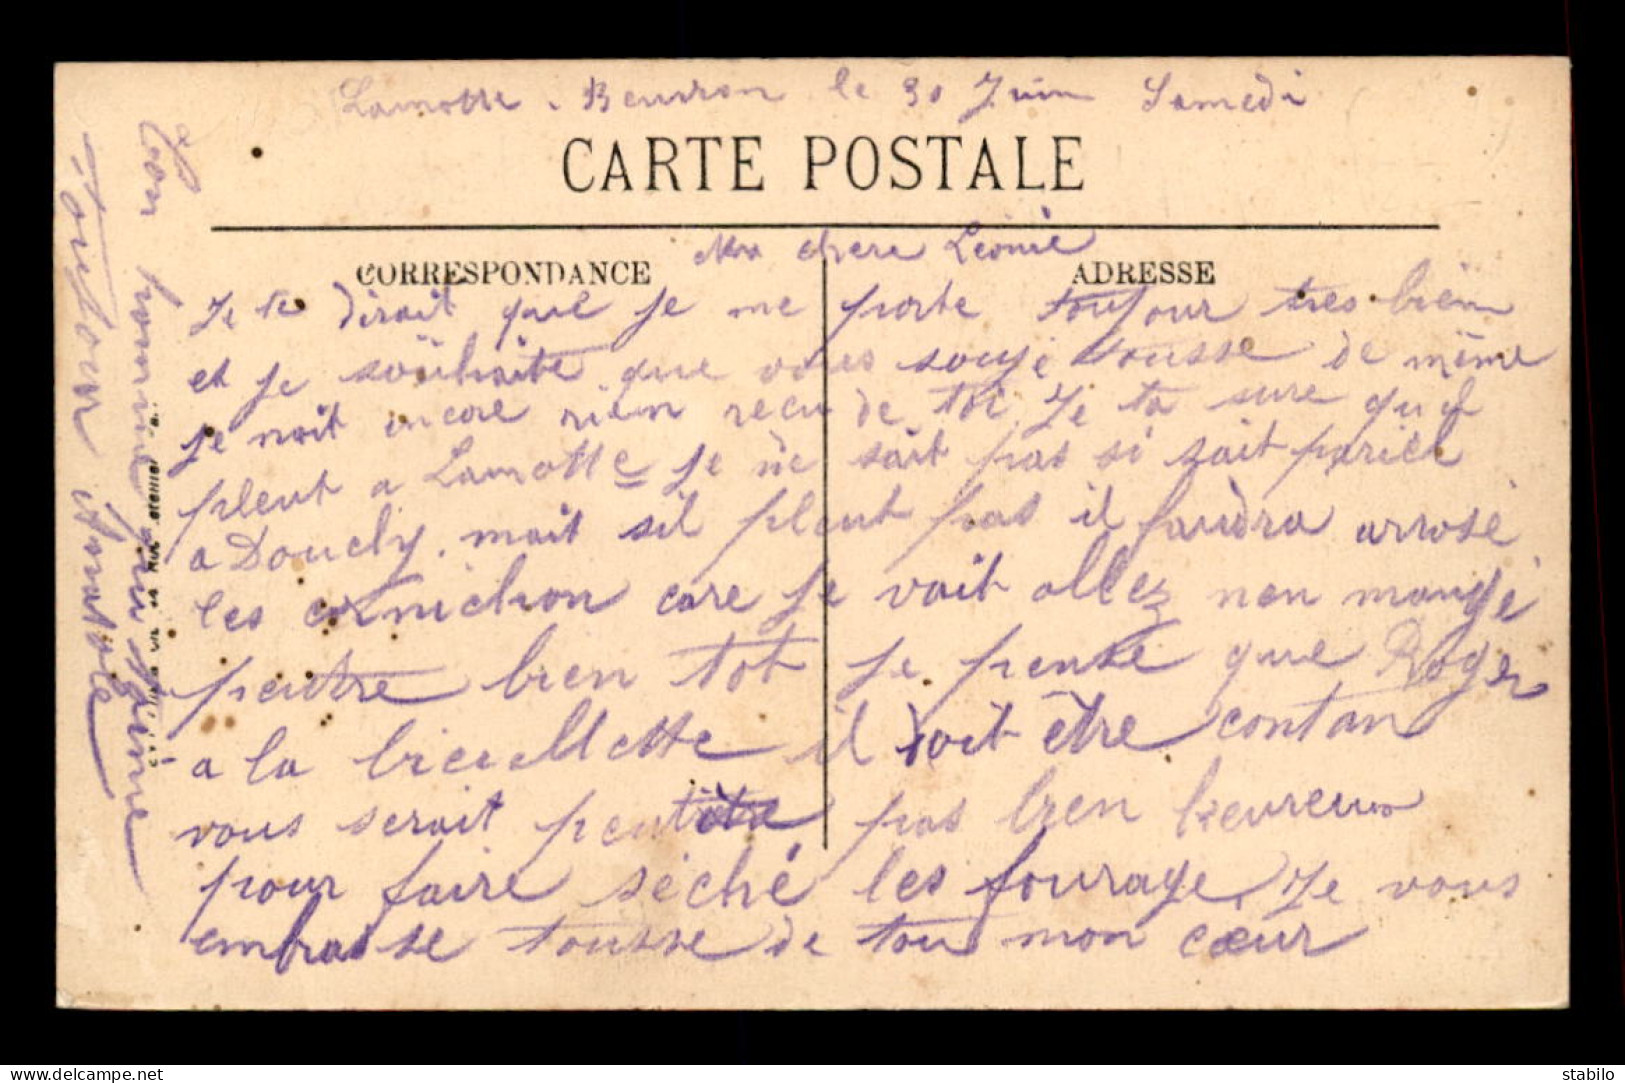 Lamotte-Beuvron le 30 Juin Samedi
CARTE POSTALE
Ma chere Leonie
CORRESPONDANCE
ADRESSE
Je te dirait que je me porte toujour tres bien
et je souhaite que vous soyé tousse de même
je nait encore rien recu de toi Je ta sure qu'il
pleut a Lamotte je ne sait pas si sait pariel
a Douchy. mait sil pleut pas il faudra arrosé
les cornichon care je vait allez nen mangé
peutre bien tot je pense que Roger
a la bicicllette il doit être contan
vous serait peut être pas bien heureux
pour faire séché les fourage. Je vous
embrasse tousse de tou mon cœur
Ton homme qui taime
Toujour Anatole
stabilo
www.delcampe.net